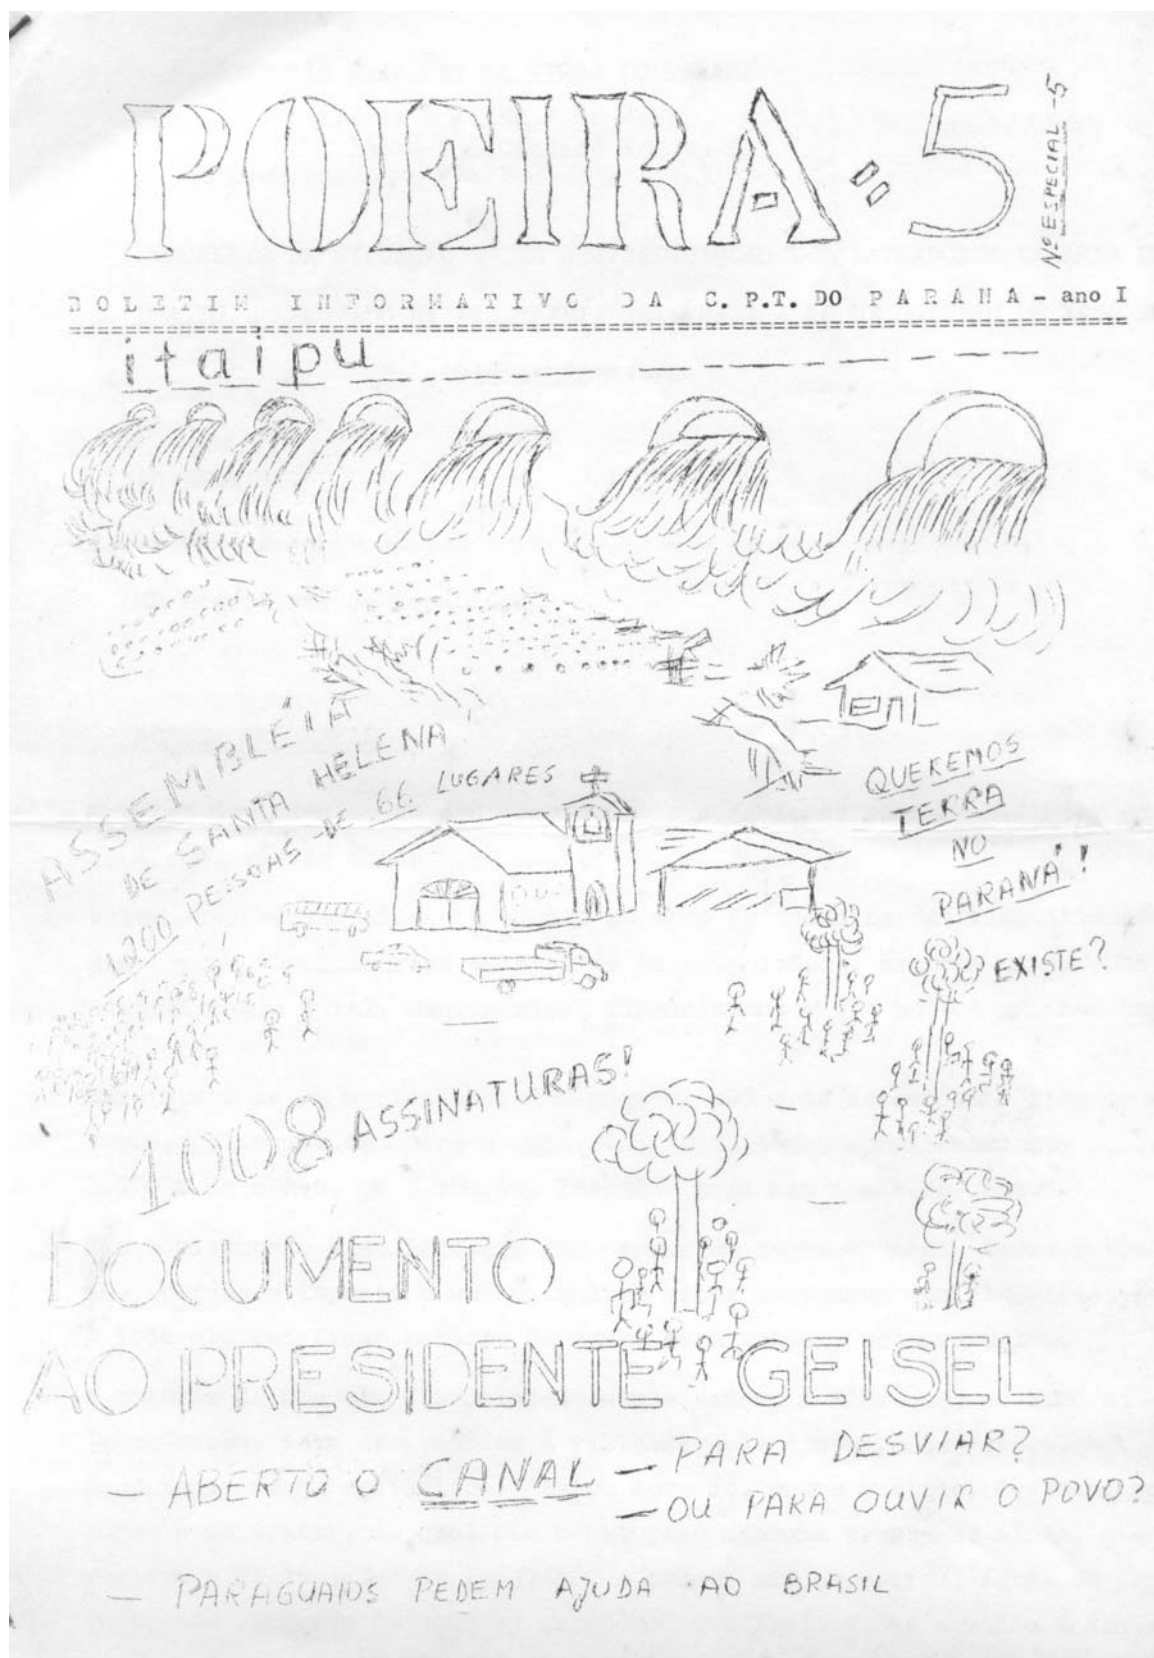 POEIRA = 5
Nº ESPECIAL - 5
BOLETIM INFORMATIVO DA C.P.T. DO PARANA - ano I
itaipu
ASSEMBLÉIA
DE SANTA HELENA!
1.200 PESSOAS - DE 66 LUGARES
QUEREMOS
TERRA
NO
PARANÁ!
EXISTE?
1008 ASSINATURAS!
DOCUMENTO
AO PRESIDENTE GEISEL
— ABERTO O CANAL — PARA DESVIAR?
— OU PARA OUVIR O POVO?
— PARAGUAIOS PEDEM AJUDA AO BRASIL